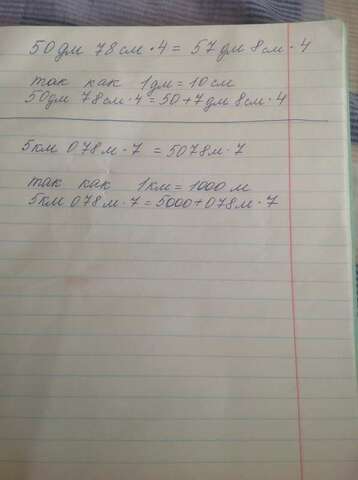 50дм 78см·4 = 57дм 8см·4
так как 1дм = 10см
50дм 78см·4 = 50+7дм 8см·4
5км 078м·7 = 5078м·7
так как 1км = 1000м
5км 078м·7 = 5000+078м·7